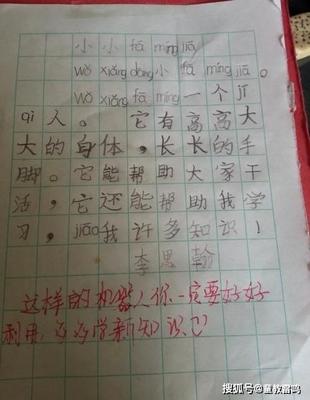 小小fā míng jiā
wǒ xiǎng dāng小fā míng jiā。
wǒ xiǎng fā míng一个jī
qì人。它有高高大
大的身体,长长的手
脚。它能帮助大家干
活,它还能帮助我学
习,jiāo我许多知识!
李思翰
这样的机器人你一定要好好
利用,必好学新知识己
搜狐号@童教雷鸣